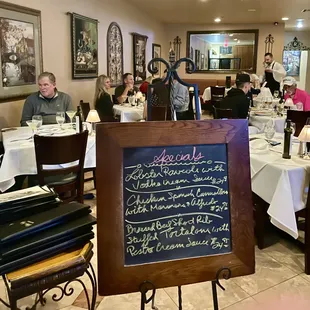 Specials
Lobster Ravioli with
Vodka Cream Sauce $29.
Chicken Spinach Cannelloni
with Marinara & Alfredo
$24.
Braised Beef Short Rib
Stuffed Tortelloni with
Pesto Cream Sauce $29